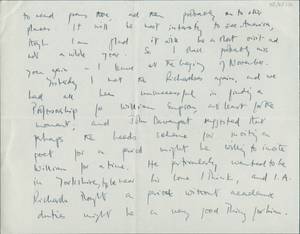 to read poetry there, and then probably on to other
places. It will be most interesting to see America,
though I am glad it will be a short visit and
not a whole year. So I shall probably miss
you again as I leave at the beginning of November.
Yesterday I met the Richardses again, and we
had all been unsuccessful in finding a
Professorship for William Empson at least for the
moment, and John Davenport suggested that
perhaps the Leeds scheme for inviting a
poet for a period might be willing to invite
William for a time. He particularly wanted to be
in Yorkshire, to be near his home I think, and I.A.
Richards thought a period without academic
duties might be a very good thing for him.